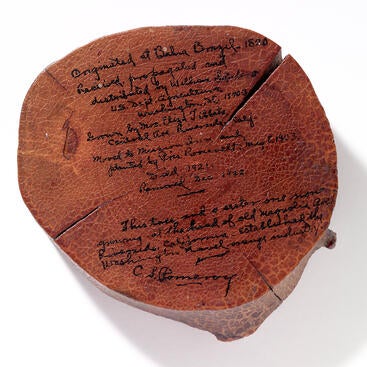 Originated at Bahia Brazil 1820
Received, propagated and
distributed by William
U.S. Dept. Agriculture
Washington, D.C. 1870
Grown by Mrs. Eliza Tibbets
Riverside, Calif.
Moved to Mission Inn and
planted by Pres. Roosevelt, May 8, 1903.
Died 1921
Removed Dec. 1922
This tree and a sister one now
growing at the head of old Magnolia Ave
Riverside, California established the
Washington Navel orange industry
C S Pomeroy